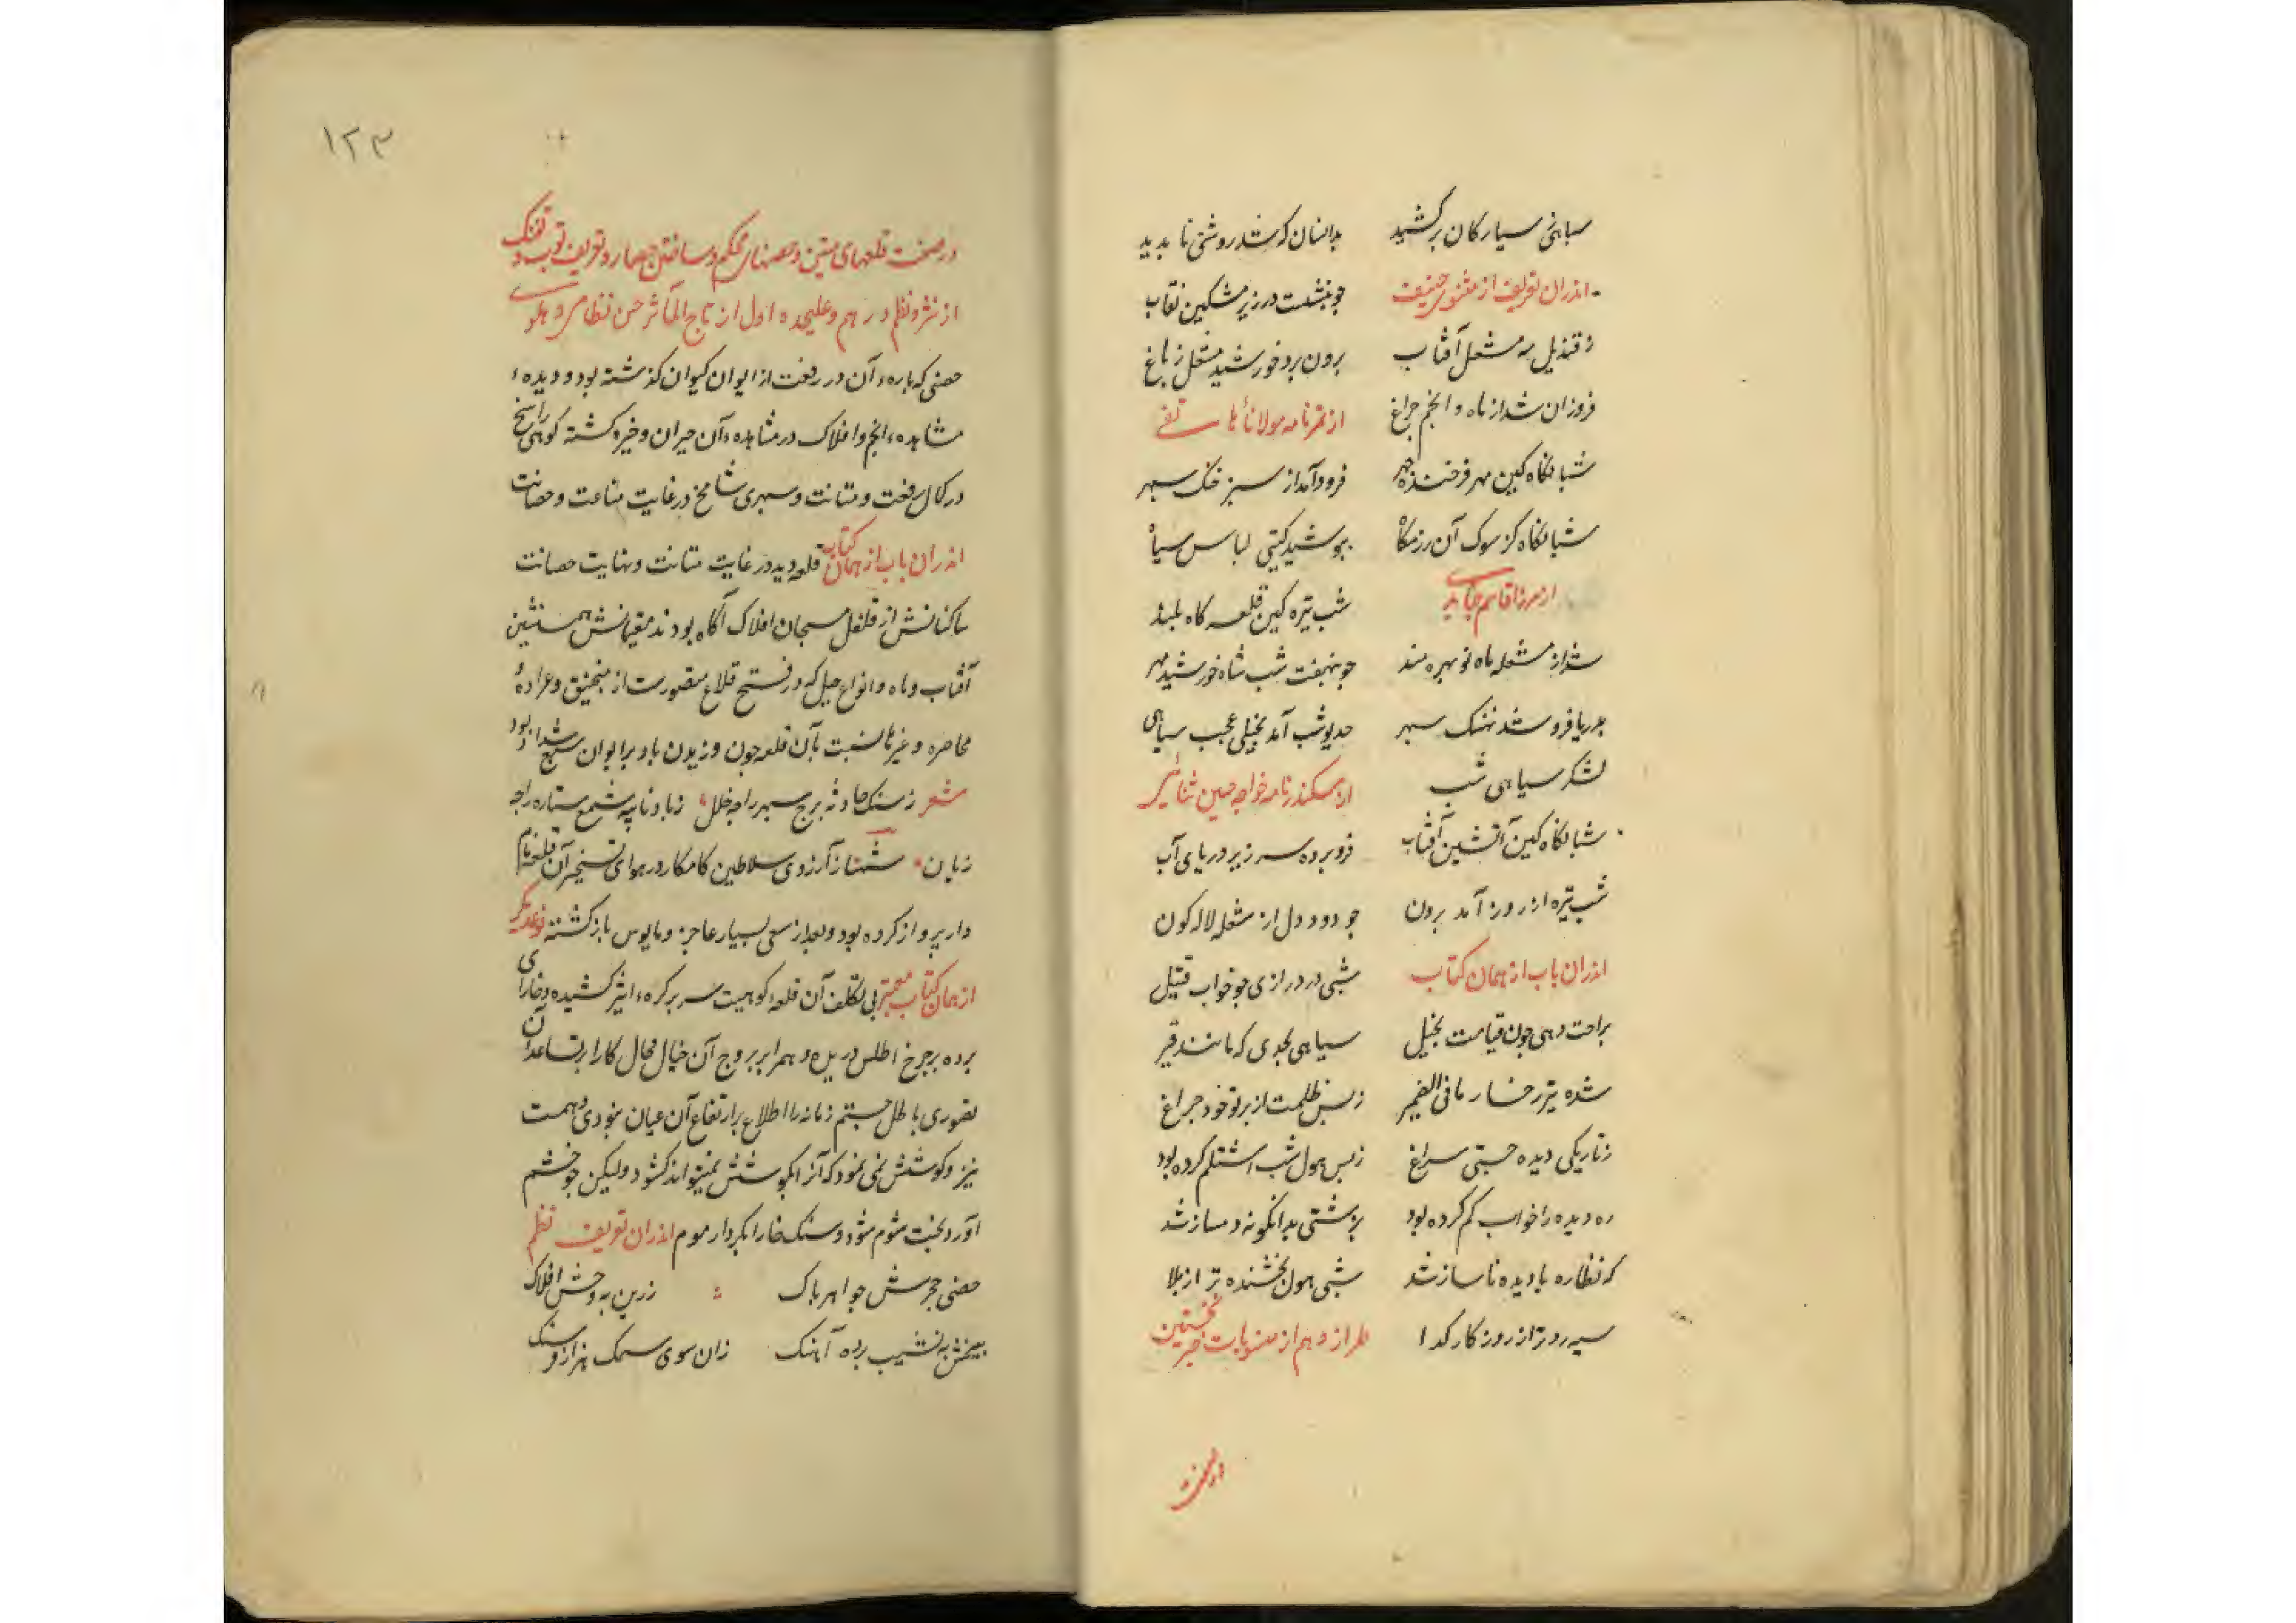 سیاهی سیارکان برکشید بدانسان که شد روشنی نا بدید
اندران تعریف از مثنوی حنیف جو بنشست در زیر مشکین نقاب
ز قندیل مه مشعل آفتاب برون برد خورشید مشعل ز باغ
فروزان شد از ماه و انجم جراغ از تمرنامه مولانا هاتفی
شبانکاه کین مهر فرخنده جهر فرود آمد از سبز خنک سبهر
شبانکاه کز سوک آن رزمکاه ببوشید کیتی لباس سیاه
از مرزا قاسم شب تیره کین قلعه کاه بلند
شد از مشعله ماه نو بهره مند جو بنهفت شب شاه خورشید مهر
بدریا فرو شد نهنک سبهر جدیو شب آمد بخیلی عجب سیاهی
لشکر سیاهی شب از سکندرنامه خواجه حسین ثنائی
شبانکاه کین آتشین آفتاب فرو برده سر زیر دریای آب
شب تیره از روز آمد برون جو دود دل از شعله لاله کون
اندران باب از همان کتاب شبی در درازی جو خواب قتیل
براحت دهی جون قیامت بخیل سیاهی بحدی که مانند قیر
شده تیره رخسار ما فی الضمیر ز بس ظلمت از برتو خود جراغ
ز تاریکی دیده جستی سراغ ز بس هول شب اشتلم کرده بود
ره دیده را خواب کم کرده بود بزشتی بدانکونه دمساز شد
که نظاره با دیده ناساز شد شبی هول بخشنده تر از بلا
سیه روتر از روزکار کدا طراز دهم از منسوبات خبر نخستین
در صفت
۱۲۳
در صفت قلعهای متین و حصنهای محکم و ساختن حصار و تعریف توب و تفنک
از نثر و نظم در هم و علیحده اول از تاج المآثر حسن نظامی دهلوی
حصنی که باره آن در رفعت از ایوان کیوان کذشته بود و دیده
مشاهده انجم و افلاک در مشاهده آن حیران و خیره کشته کوهی راسخ
در کمال رفعت و متانت و سبهری شامخ در غایت مناعت و حصانت
اندران باب از همان کتاب قلعه دید در غایت متانت و نهایت حصانت
ساکنانش از قلقل مسبحان افلاک آکاه بودند مقیمانش همنشین
آفتاب و ماه و انواع حیل که در فتح قلاع متصورست از منجنیق و عراده
محاصره و غیرها نسبت بآن قلعه جون وزیدن باد بر ایوان سبع شداد بود
شعر ز سنک حادثه برج سبهر را جه خلل ز باد نایبه شمع ستاره را جه
زیان شهباز آرزوی سلاطین کامکار در هوای تسخیر آن قلعه نام
دار برواز کرده بود و بعد از سعی بسیار عاجز و مایوس بازکشته نوعدیکر
از همان کتاب معتبر بی تکلف آن قلعه کوهیست سر بر کره اثیر کشیده و خارای
برده بر جرخ اطلس دریده و همرا بر بروج آن خیال محال کار بر تساعد آن
تصوری باطل جشم زمانه را اطلاع بر ارتفاع آن عیان نبودی و همت
نیز و کوشش نمی نمود که آنرا بکوشش میتواند کشود ولیکن جو خشم
آورد بخت شوم شود سنک خارا بکردار موم اندران تعریف نظم
حصنی حجرش جواهر باک زرین به وحش افلاک
بیخش به نشیب برده آهنک زان سوی سمک هزار فرسنک